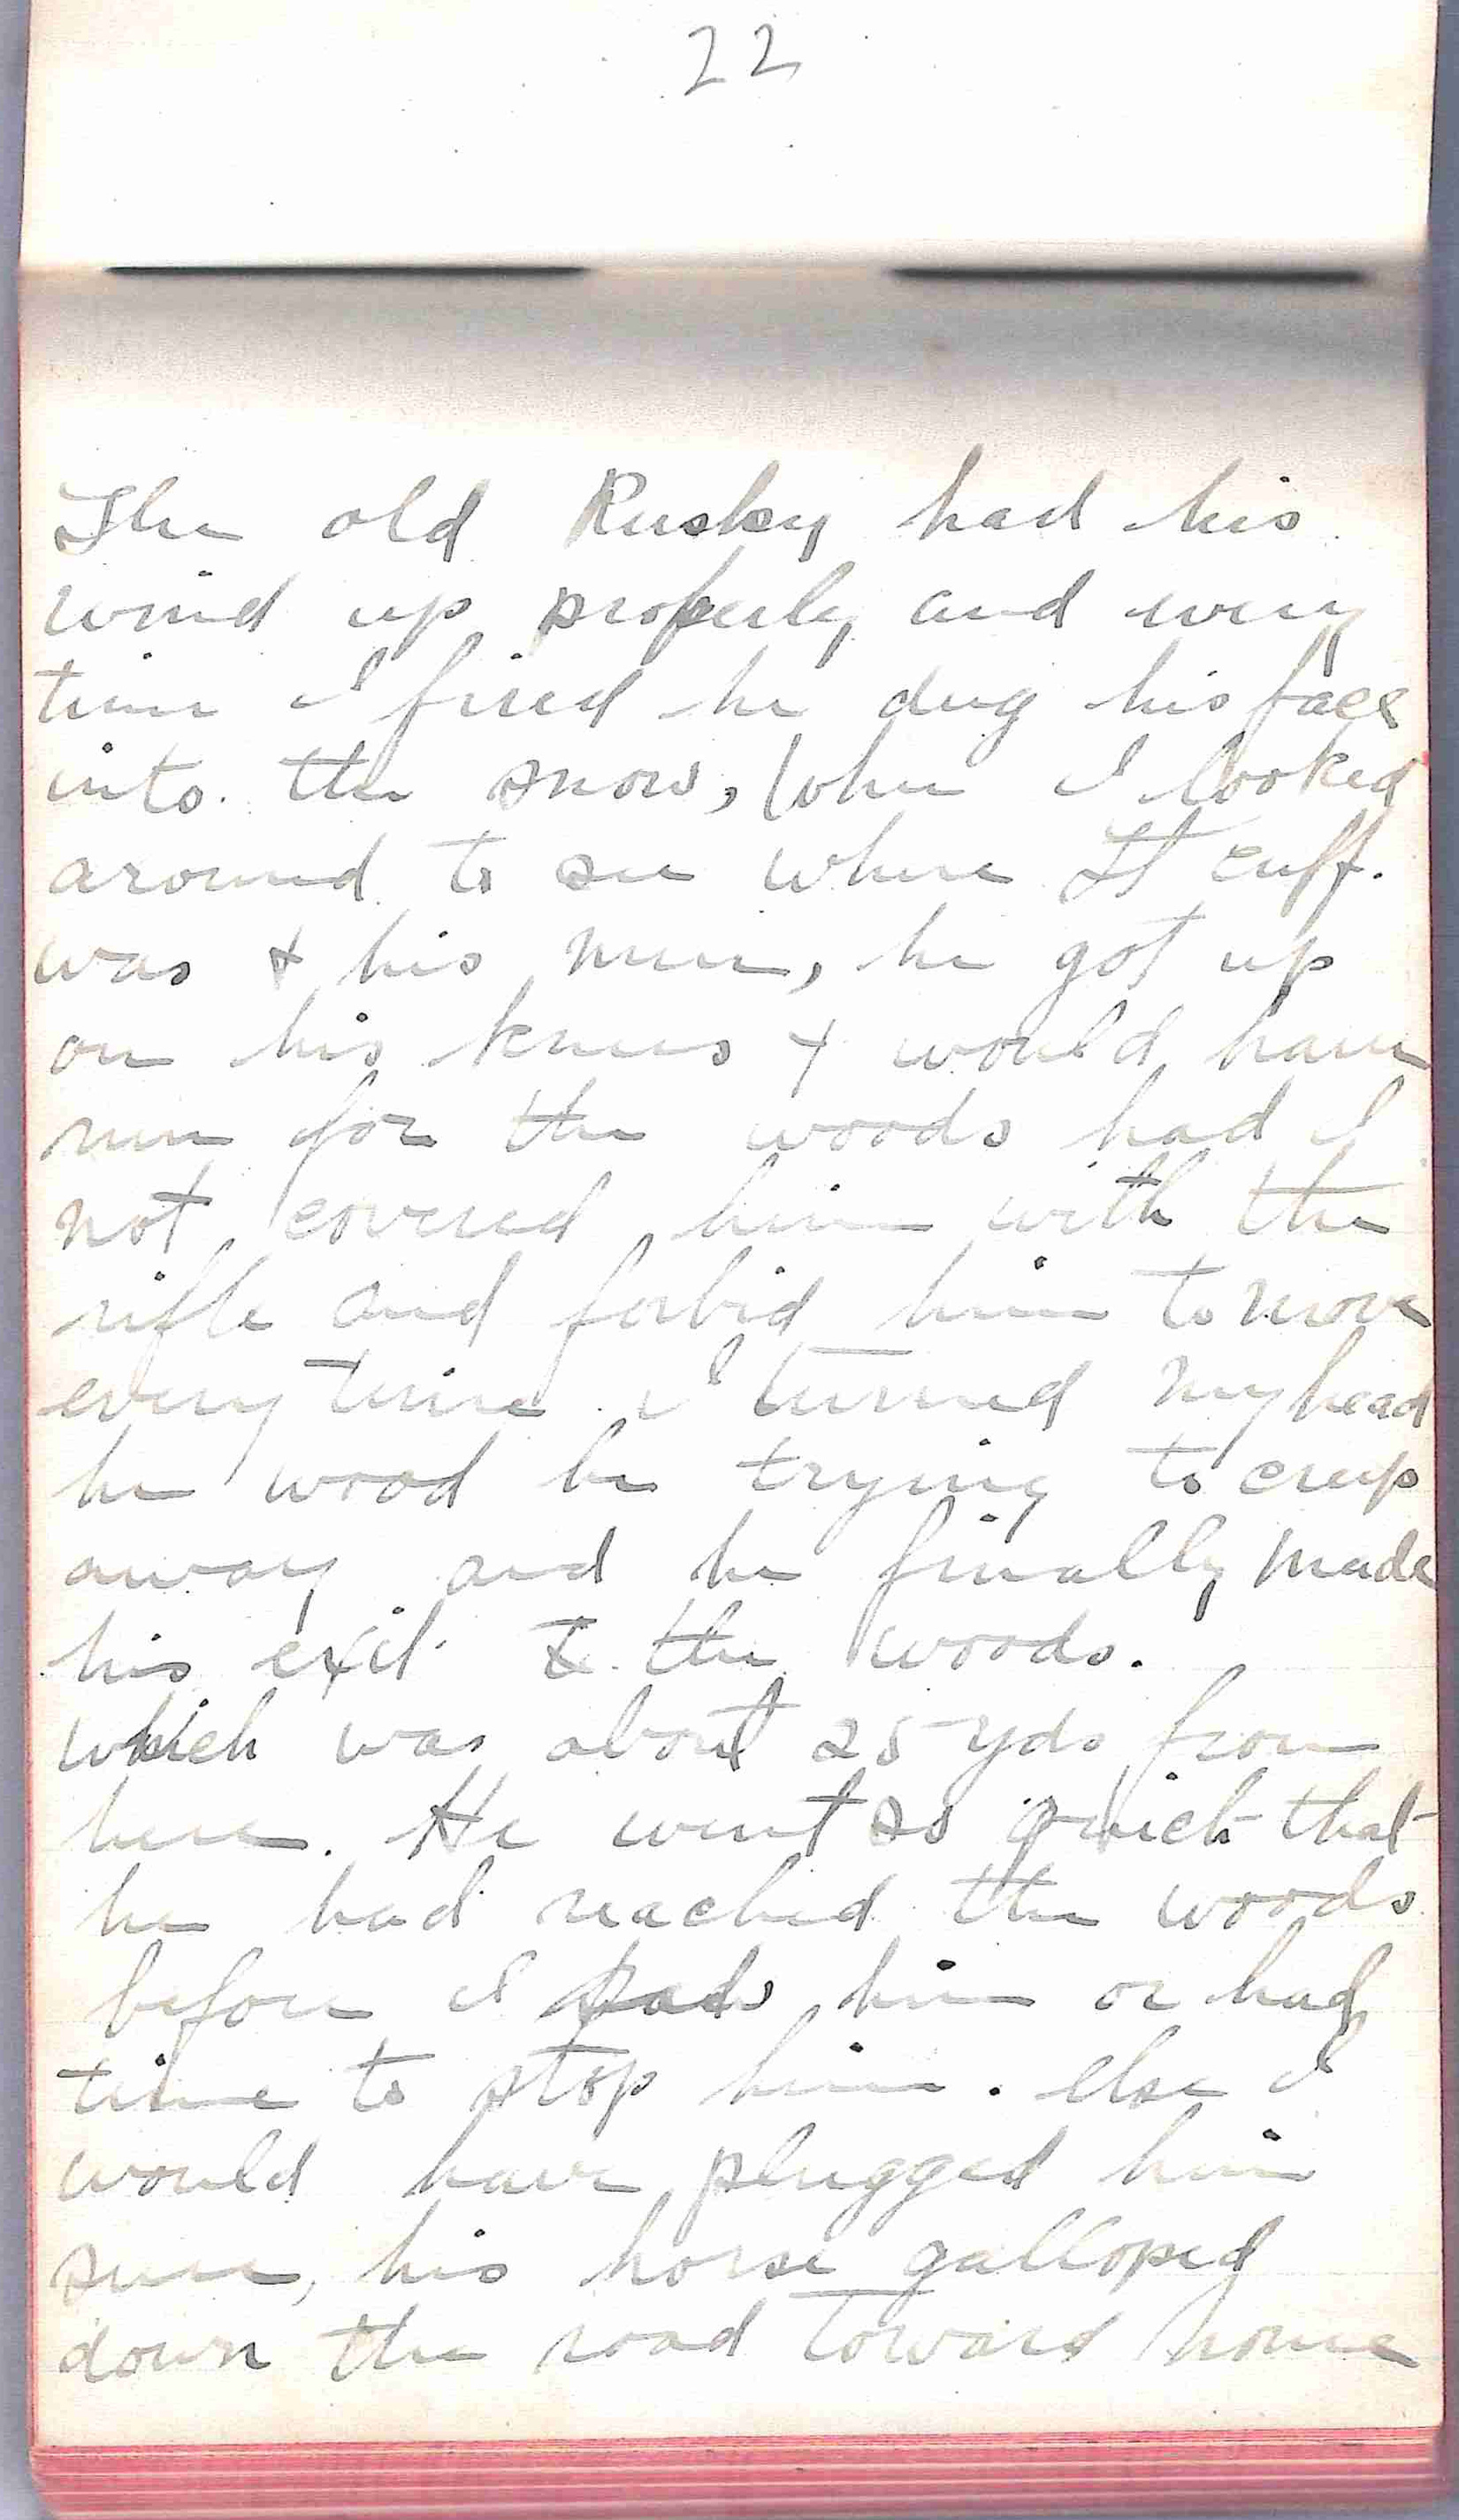 22
The old Rusky had his
wind up properly and every
time I fired he dug his face
into the snow, When I looked
around to see where Lt Cuff.
was & his men, he got up
on his knees & would have
run for the woods had I
not covered him with the
rifle and forbid him to move
every time I turned my head
he wood be trying to creep
away and he finally made
his exit to the woods.
which was about 25 yds from
here. He went so quick that
he had reached the woods
before I saw him or had
time to stop him. else I
would have plugged him
sure, his horse galloped
down the road toward home